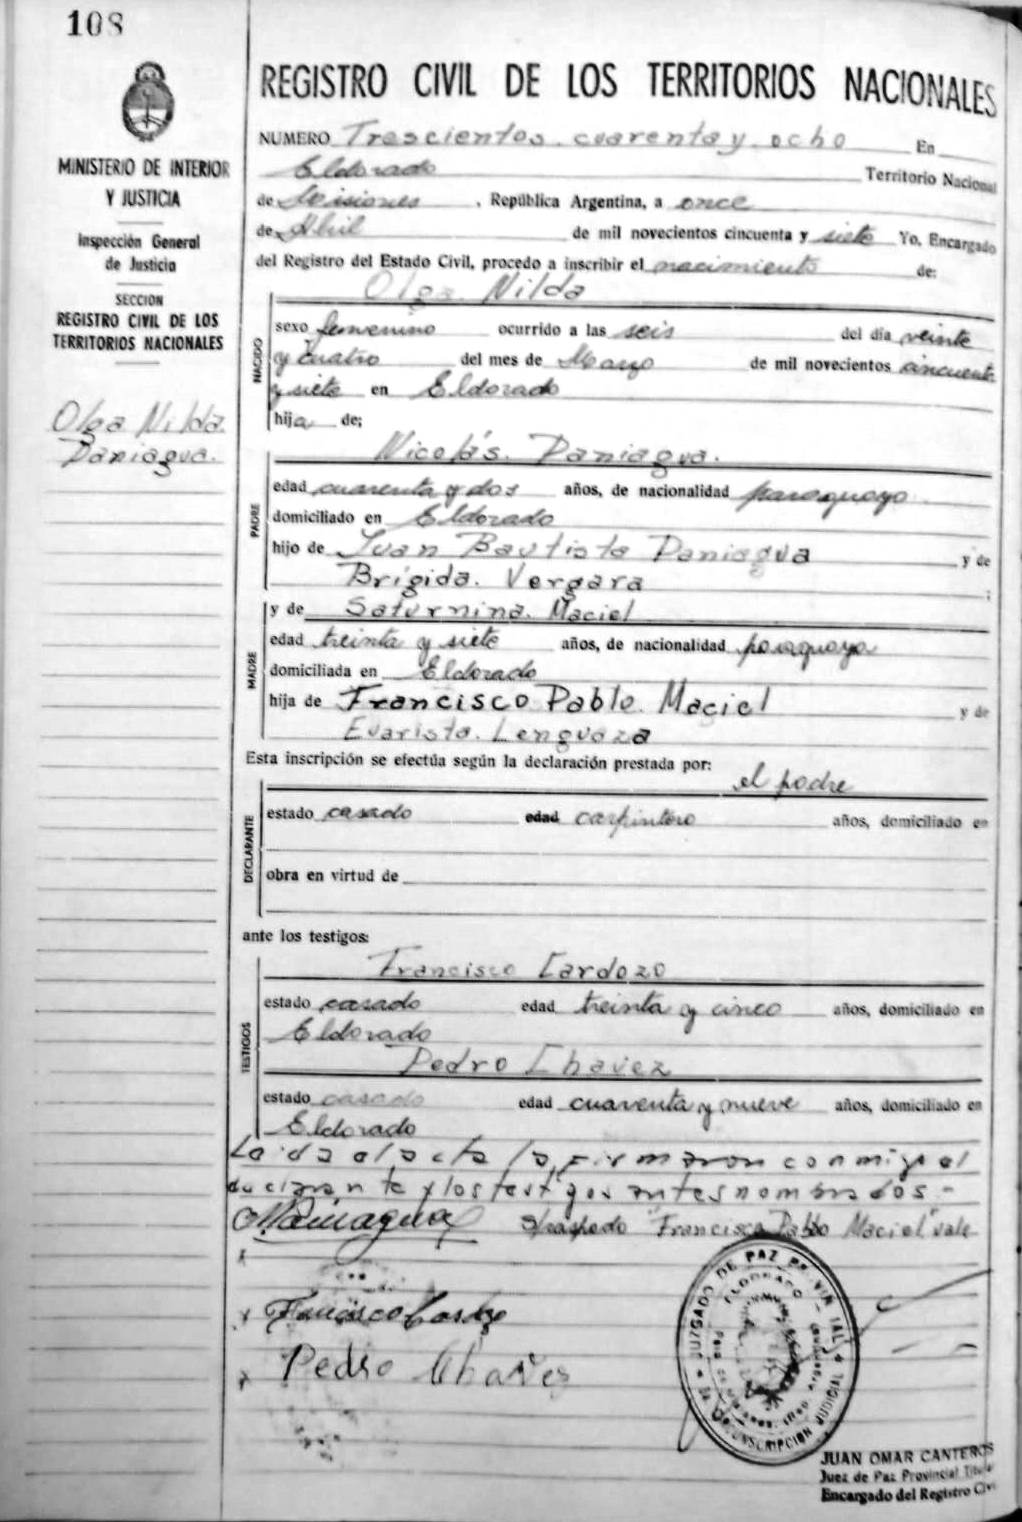 108
MINISTERIO DE INTERIOR
Y JUSTICIA
Inspección General
de Justicia
SECCION
REGISTRO CIVIL DE LOS
TERRITORIOS NACIONALES
Olga Nilda
Paniagua.
REGISTRO CIVIL DE LOS TERRITORIOS NACIONALES
NUMERO Trescientos cuarenta y ocho En
Eldorado Territorio Nacional
de Misiones , República Argentina, a once
de Abril de mil novecientos cincuenta y siete Yo, Encargado
del Registro del Estado Civil, procedo a inscribir el nacimiento de:
Olga Nilda
NACIDO
sexo femenino ocurrido a las seis del día veinte
y cuatro del mes de Marzo de mil novecientos cincuenta
y siete en Eldorado
hija de;
Nicolás Paniagua.
PADRE
edad cuarenta y dos años, de nacionalidad paraguayo
domiciliado en Eldorado
hijo de Juan Bautista Paniagua y de
Brígida Vergara ;
MADRE
y de Saturnina Maciel
edad treinta y siete años, de nacionalidad paraguaya
domiciliada en Eldorado
hija de Francisco Pablo Maciel y de
Evarista Lenguaza
Esta inscripción se efectúa según la declaración prestada por:
el padre
DECLARANTE
estado casado edad carpintero años, domiciliado en
obra en virtud de
ante los testigos:
Francisco Cardozo
TESTIGOS
estado casado edad treinta y cinco años, domiciliado en
Eldorado
Pedro Chavez
estado casado edad cuarenta y nueve años, domiciliado en
Eldorado
Leida el acta la firmaron conmigo el
declarante y los testigos antes nombrados.-
"Francisco Pablo Maciel" vale
Francisco Cardozo
Pedro Chavez
JUZGADO DE PAZ PROVINCIAL
ELDORADO
CIRCUNSCRIPCION JUDICIAL
JUAN OMAR CANTEROS
Juez de Paz Provincial Titular
Encargado del Registro Civil